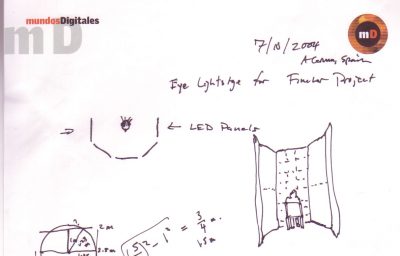 mundosDigitales
mD
mD
7/10/2004
A Coruna, Spain
Eye Lightstge for Fincher Project
→ ← LED Panels
2 m
2.5 m
5)² - 1² = 3/4 m.
1.5m